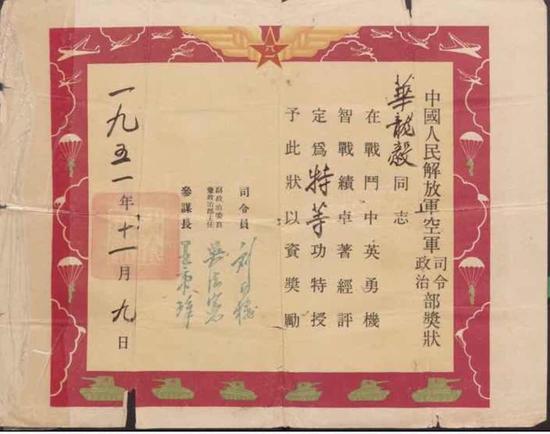 中國人民解放軍空軍司令政治部獎狀
華龍毅同志
在戰鬥中英勇機
智戰績卓著經評
定爲特等功特授
予此狀以資獎勵
司令員 劉亞樓
副政治委員兼政治部主任 吳法憲
參謀長 王秉璋
一九五一年十一月九日
八一